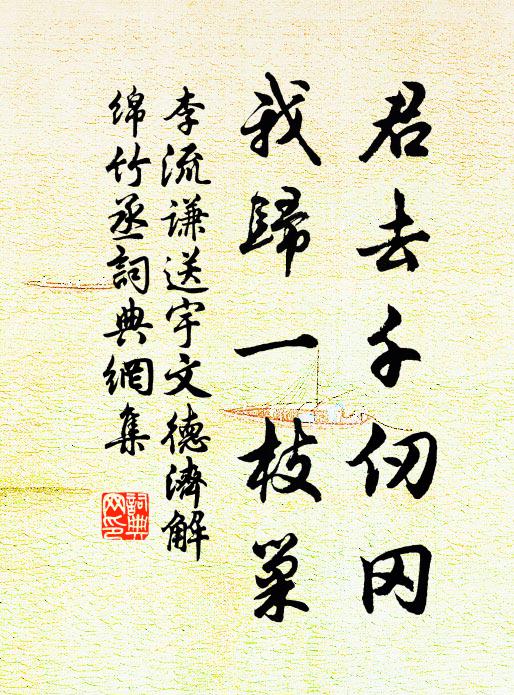 君去千仞冈
我歸一枝巢
李流谦送宇文德濟解
绵竹丞詞典網集
詞典网印